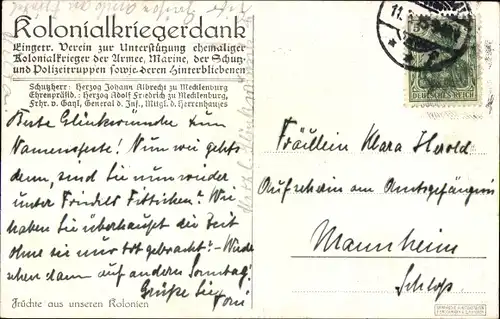 Kolonialkriegerdank
Eingetr. Verein zur Unterstützung ehemaliger
Kolonialkrieger der Armee, Marine, der Schutz-
und Polizeitruppen sowie deren Hinterbliebenen
Schutzherr: Herzog Johann Albrecht zu Mecklenburg
Ehrenpräsid.: Herzog Adolf Friedrich zu Mecklenburg,
Frhr. v. Gayl, General d. Inf., Mitgl. d. Herrenhauses
Beste Glückwünsche zum
Namensfeste! Nun wie gehts
denn, sind Sie nun wieder
unter Friedels Fittichen? Wie
haben Sie überhaupt die Zeit
ohne sie nur tot gebracht? - Wieder-
sehen dann auf anderen Sonntag!
Grüße Sie
Toni
Früchte aus unseren Kolonien
11.
DEUTSCHES REICH
Fräulein Klara Herold
Aufseherin am Amtsgefängnis
Mannheim
Schloß